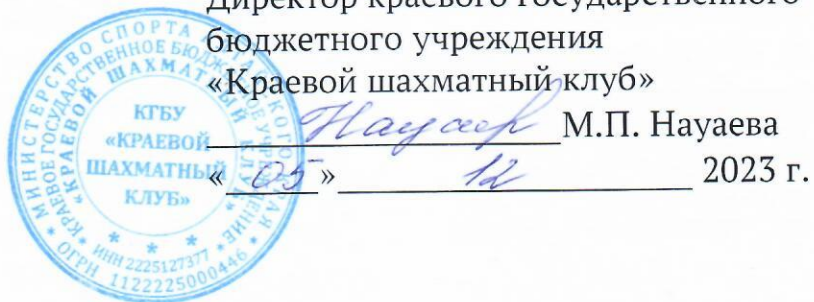 Директор краевого государственного
бюджетного учреждения
«Краевой шахматный клуб»
М.П. Науаева
«05» 12 2023 г.
МИНИСТЕРСТВО СПОРТА АЛТАЙСКОГО КРАЯ
КРАЕВОЕ ГОСУДАРСТВЕННОЕ БЮДЖЕТНОЕ УЧРЕЖДЕНИЕ
«КРАЕВОЙ ШАХМАТНЫЙ КЛУБ»
КГБУ
«КРАЕВОЙ
ШАХМАТНЫЙ
КЛУБ»
ИНН 2225127377
ОГРН 1122225000446